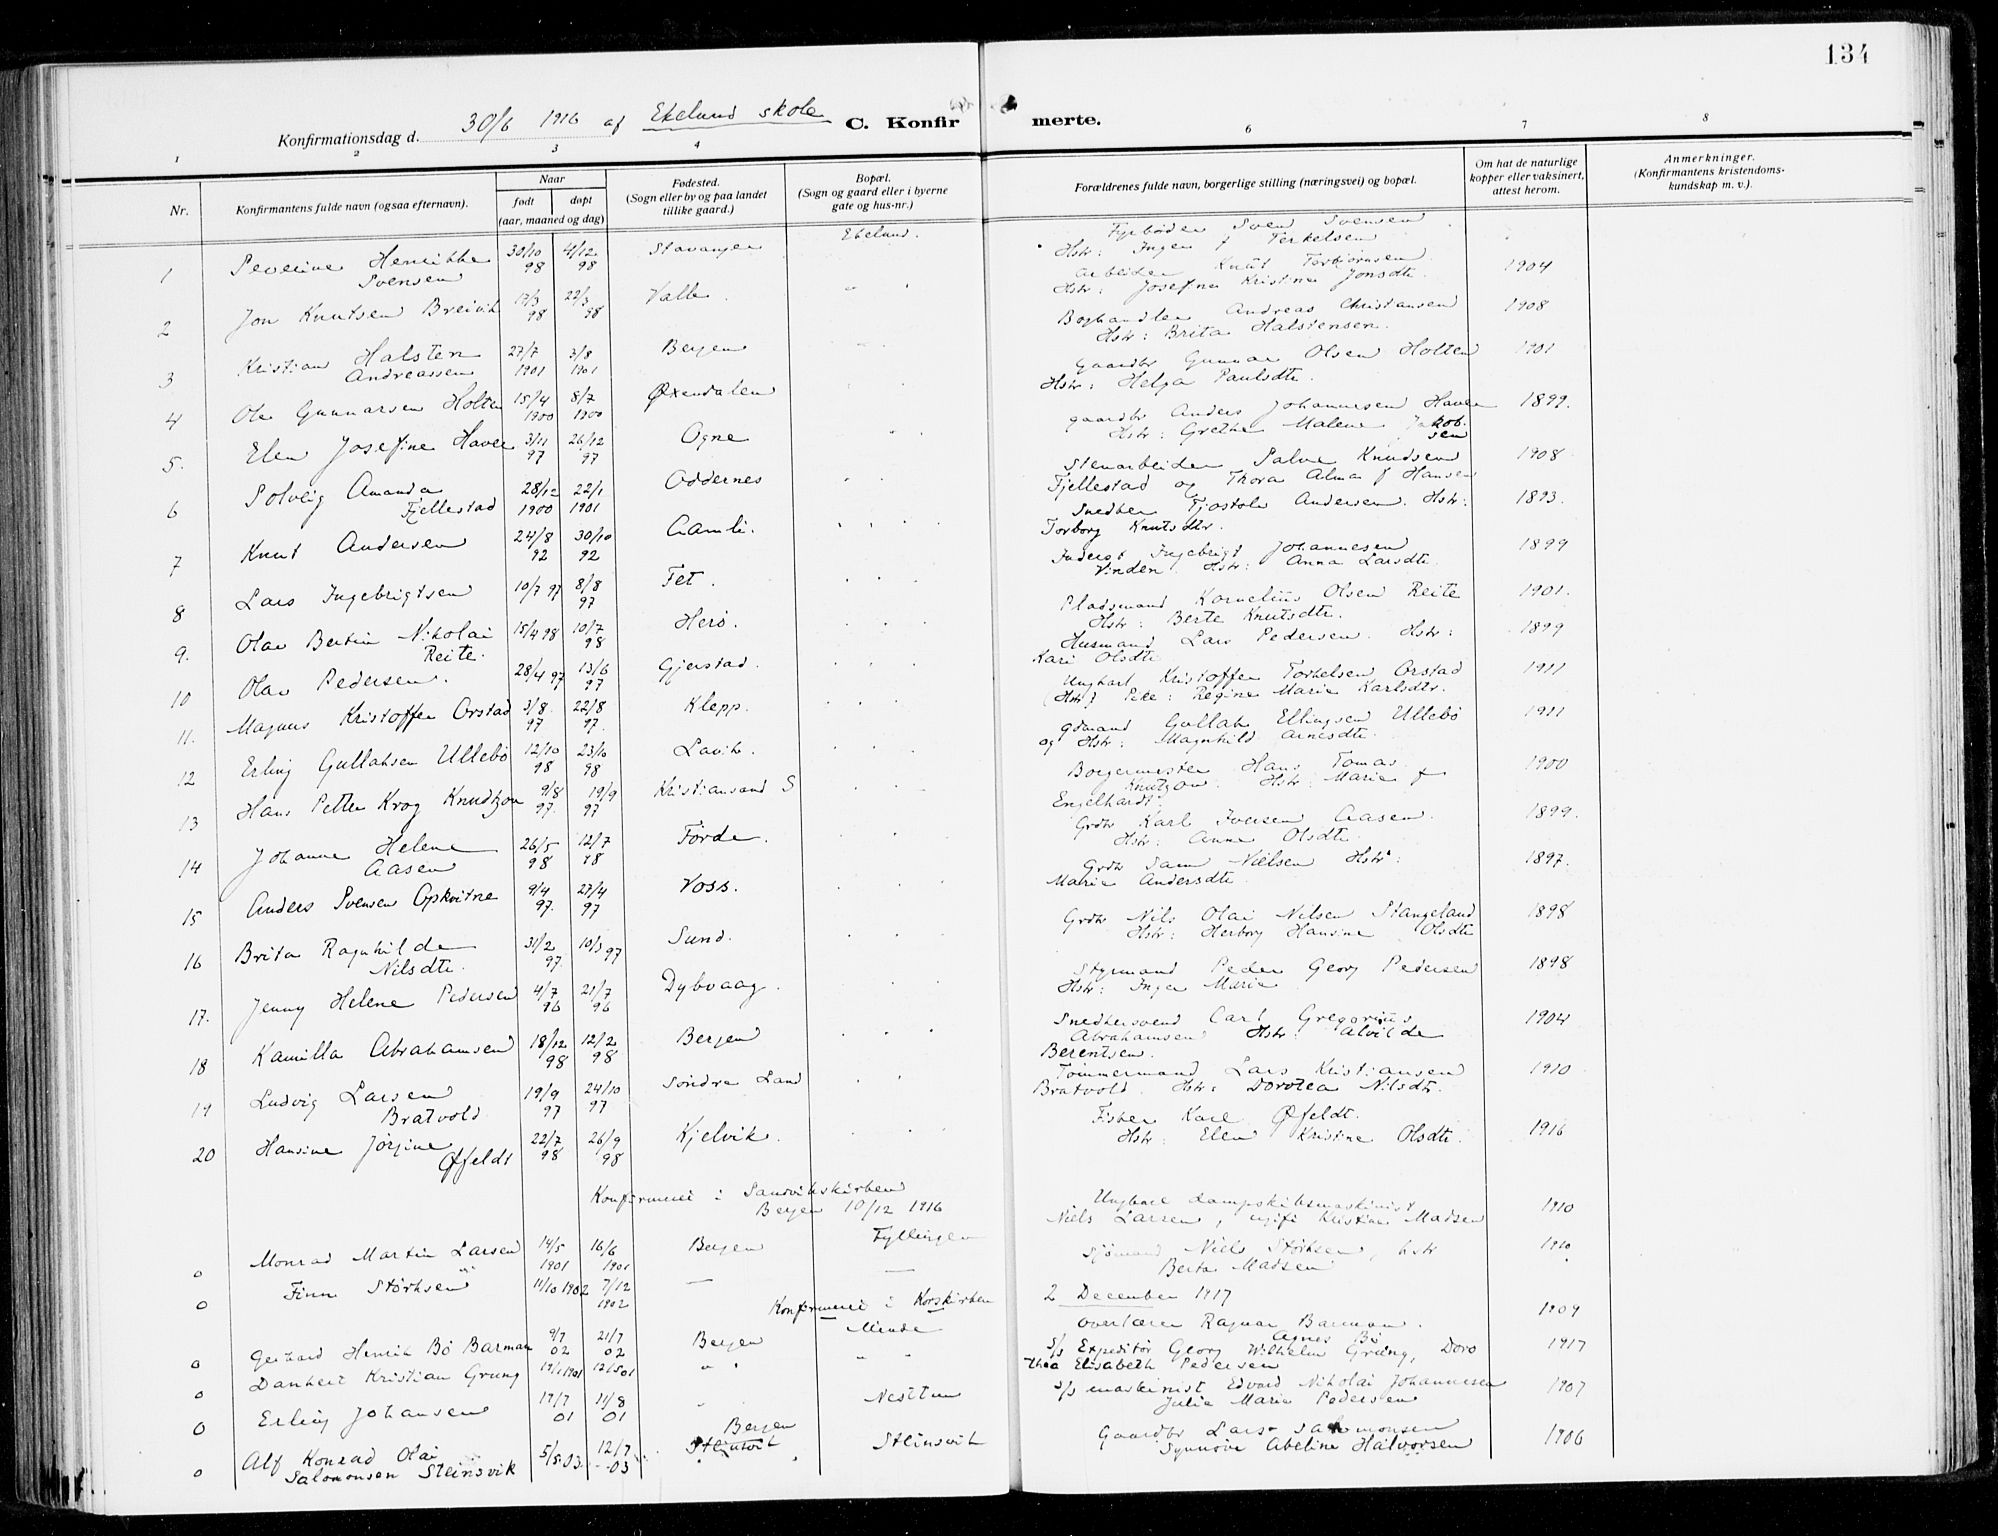 134
Konfirmationsdag d. 30/6 1916 af Ekelund skole
C. Konfirmerte.
1 2 3 4 6 7 8
Nr.
Konfirmantens fulde navn (ogsaa efternavn).
Naar
født døpt
(aar, maaned og dag)
Fødested.
(Sogn eller by og paa landet
tillike gaard.)
Bopæl.
(Sogn og gaard eller i byerne
gate og hus-nr.)
Forældrenes fulde navn, borgerlige stilling (næringsvei) og bopæl.
Om hat de naturlige
kopper eller vaksinert,
attest herom.
Anmerkninger.
(Konfirmantens kristendoms-
kundskap m. v.).
1 Severine Henrikke Svensen 30/10 98 4/12 98 Stavanger Ekelund. Fyrbøder Sven Svensen
Hstr: Inger f Terkelsen 1904
2 Jon Knutsen Breivik 17/3 98 22/3 98 Valle. Arbeider Knut Torbjørnsen
Hstr: Josefine Kristine Jonsdtr. 1908
3 Kristian Halsten Andreassen 27/7 1901 3/8 1901 Bergen Boghandler Andreas Christansen
Hstr: Brita Halstensen. 1901
4 Ole Gunnarsen Holten 15/4 1900 8/7 1900 Øxendalen Gaardbr Gunnar Olsen Holten
Hstr: Helga Paulsdtr. 1899.
5. Elen Josefine Haver 3/11 97 26/12 97 Ogne gaardbr Anders Johannesen Haver
Hstr: Grethe Malene Jakobsen 1908
6 Solveig Amanda Fjellestad 28/12 1900 22/1 1901 Oddernes Stenarbeider Salve Knudsen
Fjellestad og Thora Alma f Hansen 1893.
7 Knut Andersen 24/8 92 30/10 92 Aamli. Snedker Fjostolv Andersen. Hstr:
Torborg Knutsdtr. 1899
8 Lars Ingebrigtsen 10/7 97 8/8 97 Fet. Inderst Ingebrigt Johannesen
Vinden. Hstr: Anna Larsdtr. 1901.
9. Olav Bertin Nikolai Reite. 15/4 98 10/7 98 Herö. Pladsmand Kornelius Olsen Reite
Hstr: Berte Knutsdtr. 1899
10 Olav Pedersen. 28/4 97 13/6 97 Gjerstad. Husmand Lars Pedersen. Hstr:
Kari Olsdtr 1911
11. Magnus Kristoffer Orstad 3/8 97 22/8 97. Klepp. Ungkarl Kristoffer Torkelsen Orstad
(Hstr) Pike: Regine Marie Karlsdtr. 1911
12 Erling Gullaksen Ullebö 12/10 98 23/10 98 Lavik. gdmand Gullak Ellingsen Ullebö
og Hstr: Magnhild Arnesdtr. 1900
13 Hans Petter Krog Knudtzon 9/8 97. 19/9 97 Kristiansand S Borgermester Hans Tomas
Knutzon. Hstr: Marie f
Engelhardt. 1899.
14 Johanne Helene Aasen 26/5 98 12/7 98 Förde. Grdbr Karl Iversen Aasen.
Hstr: Anne Olsdtr. 1897.
15 Anders Svensen Opkvitne 9/4 97. 27/4 97 Voss. Grdbr Sam Nielsen Hstr:
Marie Andersdtr. 1898
16 Brita Ragnhilde Nilsdtr. 31/2 97. 10/3 97 Sund. Grdbr Nils Olai Nilsen Stangeland
Hstr: Herborg Hansine Olsdtr 1898
17. Jenny Helene Pedersen 4/7 96 21/7 96 Dybvaag. Styrmand Peder Georg Pedersen
Hstr: Inger Marie 1904
18 Kamilla Abrahamsen 18/12 98 12/2 98 Bergen Snedkersvend Carl Gregorius
Abrahamsen Hstr: Alvilde
Berentsen. 1910
19 Ludvig Larsen Bratvold 19/9 97 24/10 97 Söndre Land Tömmermand Lars Kristiansen
Bratvold. Hstr: Dorotea Nilsdtr.
20 Hansine Jörgine Öfeldt 22/7 98 26/9 98 Kjelvik. Fisker Karl Öfeldt.
Hstr: Elen Kristine Olsdtr. 1916
Konfirmert i Sandvikskirken
Bergen 10/12 1916
o Monrad Martin Larsen 14/5 1901 16/6 1901 Bergen Fyllingen Ungkarl dampskibsmaskinist
Niels Larsen, ugift Kristine Madsen 1910
o Finn Störksen 11/10 1902 7/12 1902 — — Sjömand Niels Störksen, hstr
Berta Madsen 1910
Konfirmert i Korskirken 2 December 1917
o Gerhard Henrik Bö Barman 9/7 02 21/7 02 Bergen Minde overlærer Ragnar Barman.
Agnes Bö 1909
o Dankert Kristian Grung 19/1 1901 12/5 01 S/s Expeditör Georg Wilhelm Grüng, Doro
thea Elisabeth Pedersen 1917
o Erling Johansen 17/7 01 11/8 01 Nesttun S/s maskinist Edvard Nikolai Johannesen
Julie Marie Pedersen 1907
o Alf Konrad Olai Salomonsen Steinsvik 5/5 03. 12/7 03 Bergen Steinsvik Steinsvik Gaardbr Lars Salomonsen
Synnöve Abeline Halvorsen 1906